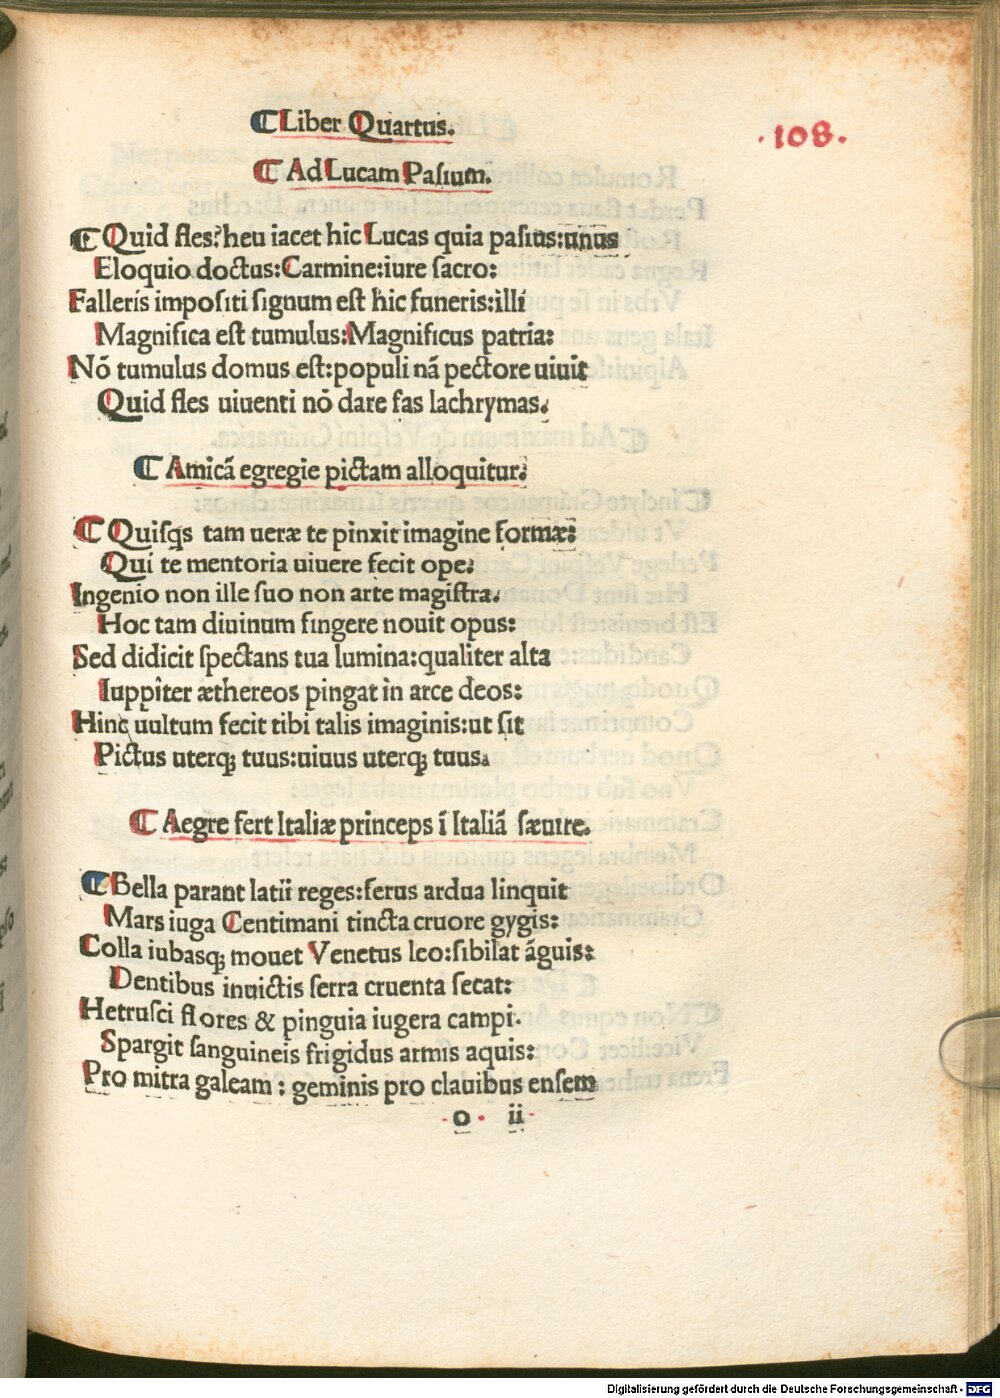 ·108·
¶ Liber Quartus.
¶ Ad Lucam Pasium.
¶ Quid fles? heu iacet hic Lucas quia pasius: unus
Eloquio doctus: Carmine: iure sacro:
Falleris impositi signum est hic funeris: illi
Magnifica est tumulus: Magnificus patria:
Nō tumulus domus est: populi nā pectore uiuit
Quid fles uiuenti nō dare fas lachrymas.
¶ Amicā egregie pictam alloquitur.
¶ Quisqs tam ueræ te pinxit imagine formæ:
Qui te mentoria uiuere fecit ope:
Ingenio non ille suo non arte magistra.
Hoc tam diuinum fingere nouit opus:
Sed didicit spectans tua lumina: qualiter alta
Iuppiter æthereos pingat in arce deos:
Hinc uultum fecit tibi talis imaginis: ut sit
Pictus uterqꝫ tuus: uiuus uterqꝫ tuus.
¶ Aegre fert Italiæ princeps ī Italiā sæuire.
¶ Bella parant latii reges: ferus ardua linquit
Mars iuga Centimani tincta cruore gygis:
Colla iubasqꝫ mouet Venetus leo: sibilat āguis:
Dentibus inuictis serra cruenta secat:
Hetrusci flores & pinguia iugera campi.
Spargit sanguineis frigidus armis aquis:
Pro mitra galeam: geminis pro clauibus ensem
o ii
Digitalisierung gefördert durch die Deutsche Forschungsgemeinschaft - DFG